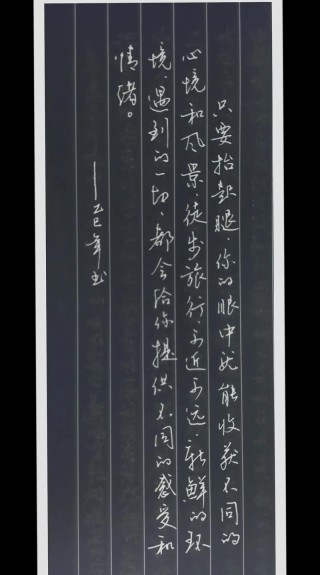 只要抬起腿，你的眼中就能收获不同的
心境和风景，徒步旅行，可近可远，新鲜的环
境，遇到的一切，都会给你提供不同的感受和
情绪。
——乙巳年书